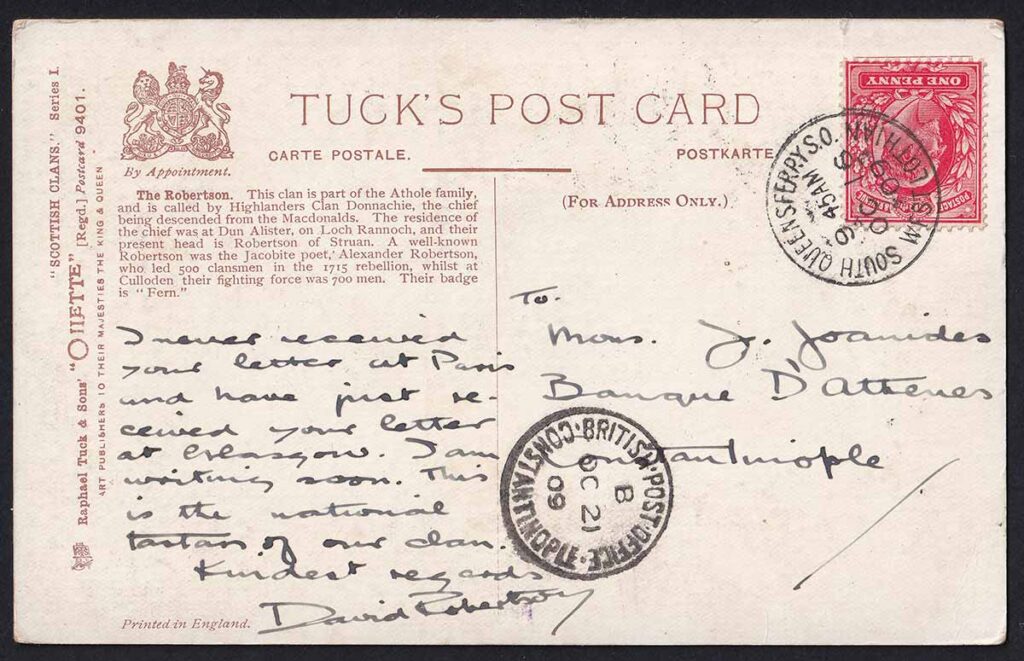 TUCK'S POST CARD
CARTE POSTALE.
POSTKARTE
By Appointment.
(FOR ADDRESS ONLY.)
"SCOTTISH CLANS." Series I.
Raphael Tuck & Sons' "OILETTE" [Regd.] Postcard 9401.
ART PUBLISHERS TO THEIR MAJESTIES THE KING & QUEEN
The Robertson. This clan is part of the Athole family,
and is called by Highlanders Clan Donnachie, the chief
being descended from the Macdonalds. The residence of
the chief was at Dun Alister, on Loch Rannoch, and their
present head is Robertson of Struan. A well-known
Robertson was the Jacobite poet,' Alexander Robertson,
who led 500 clansmen in the 1715 rebellion, whilst at
Culloden their fighting force was 700 men. Their badge
is "Fern."
I never received
your letter at Paris
and have just re-
ceived your letter
at Glasgow. I am
writing soon. This
is the national
tartan of our clan.
Kindest regards
David Robertson
Printed in England.
To.
Mons. J. Joanides
Banque D'Athenes
Constantinople
ONE PENNY
POSTAGE
SOUTH QUEENSFERRY S.O.
LOTHIAN
45AM
OC 16
09
BRITISH·POST·OFFICE·CONSTANTINOPLE·
B
OC 21
09